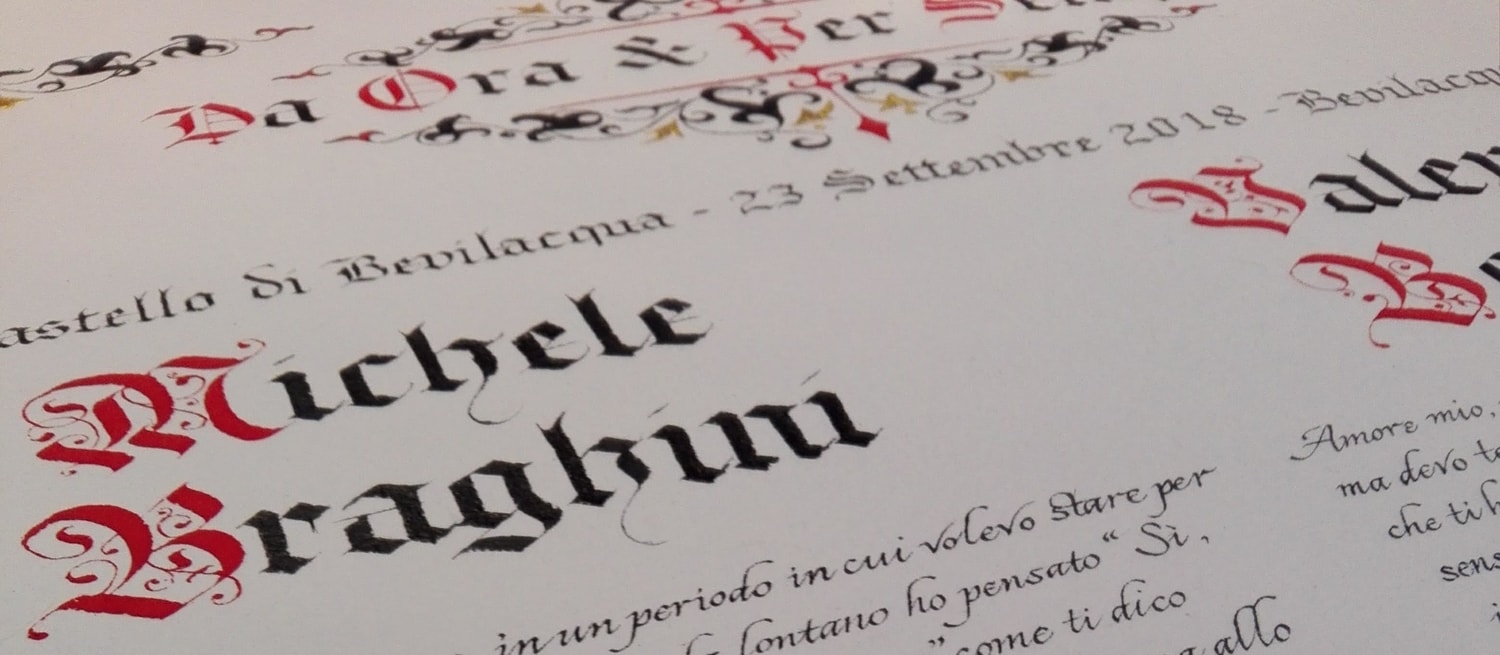 Da Ora & Per
astello di Bevilacqua - 23 Settembre 2018 - Bevilacqu
Michele
Braghini
Valer
B
in un periodo in cui volevo stare per
lontano ho pensato“ Sì,
” come ti dico
allo
Amore mio,
ma devo te
che ti h
sens